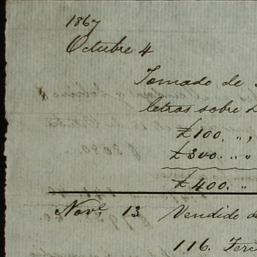 1867
Octubre 4
Tomado de
letras sobre L
£100. „ „
£300. „ „
£400. „
Nov.e 13 Vendido d
116. Ter